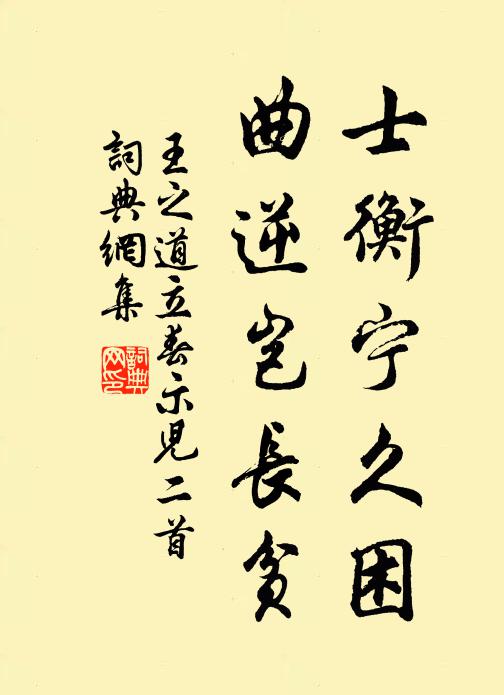 士衡宁久困
曲逆岂長貧
王之道立春示児二首
詞典網集
詞典网印